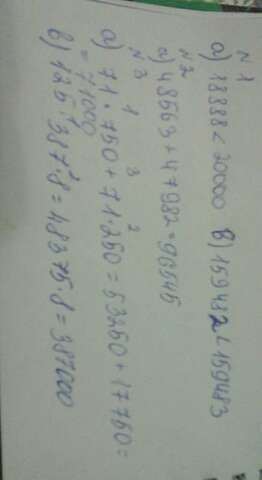 №1
а) 18888 < 20000 в) 159482 < 159483
№2
а) 48563 + 47982 = 96545
№3
1 3 2
а) 71 · 750 + 71 · 250 = 53250 + 17750 =
= 71000
1 2
в) 125 · 387 · 8 = 48375 · 8 = 387000